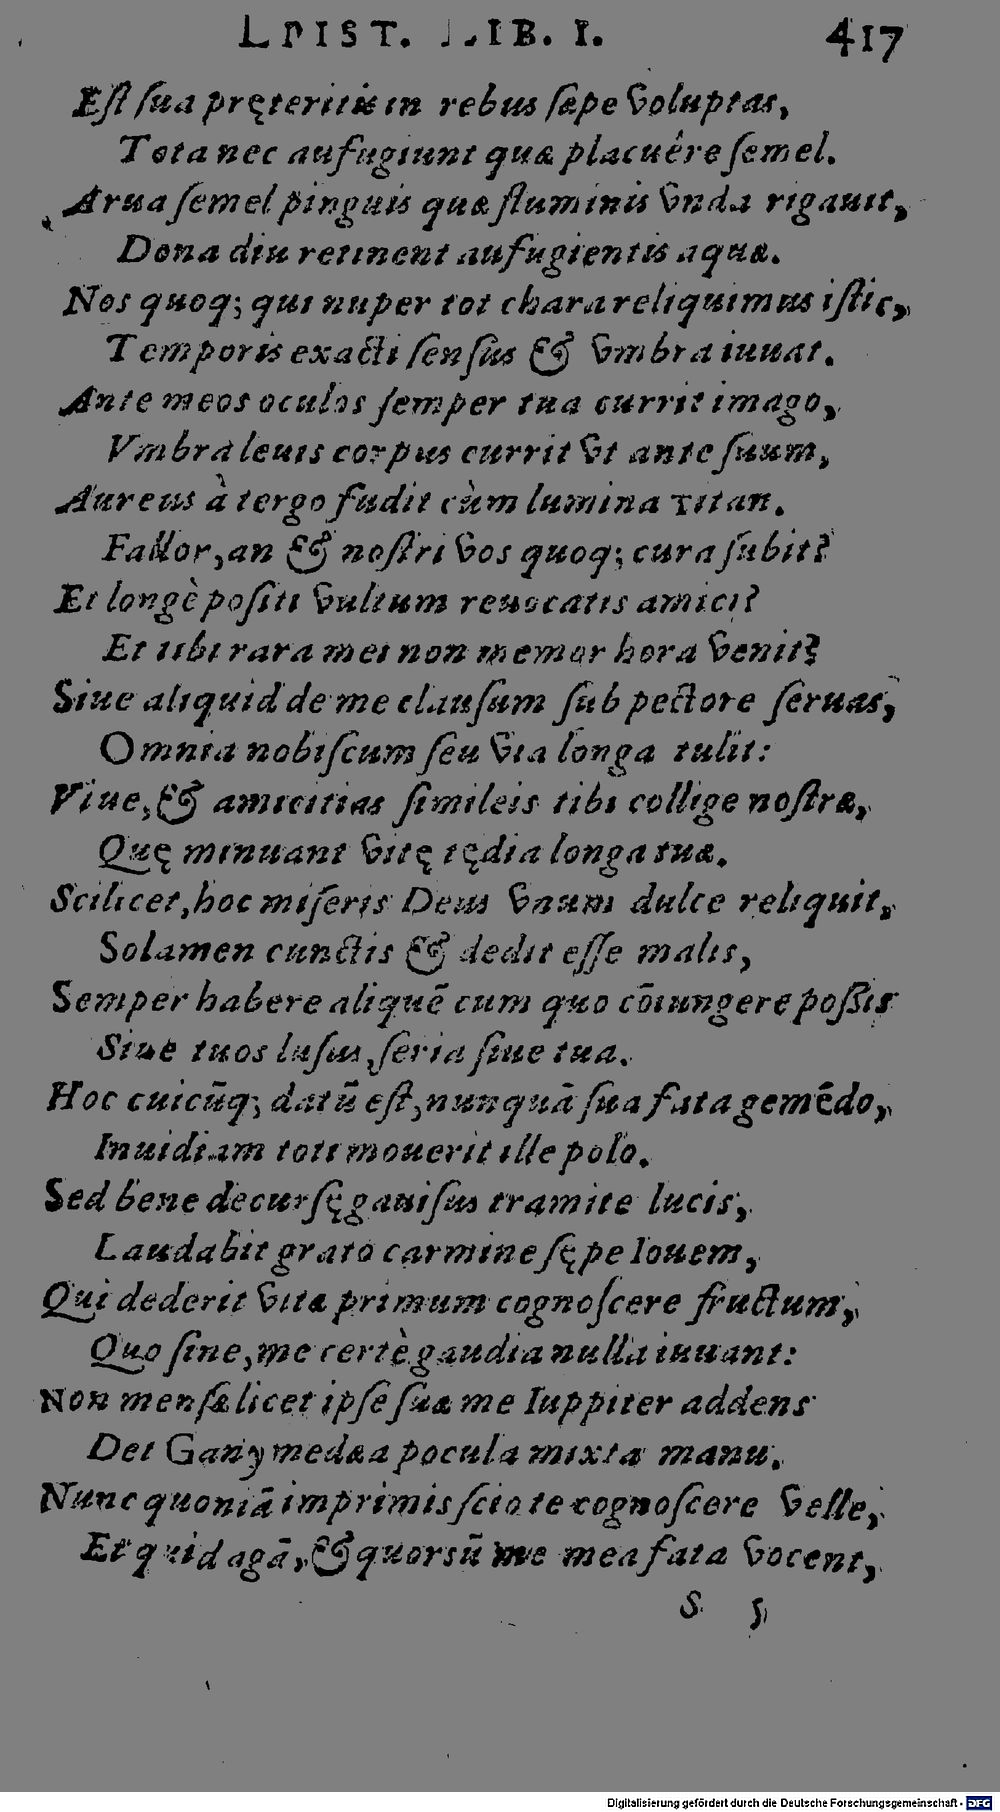 EPIST. LIB. I. 417
Eſt ſua pręteritis in rebus ſæpe voluptas,
Tota nec aufugiunt quæ placuêre ſemel.
Arua ſemel pinguis quæ fluminis vnda rigauit,
Dona diu retinent aufugientis aquæ.
Nos quoq; qui nuper tot chara reliquimus iſtic,
Temporis exacti ſenſus & vmbra iuuat.
Ante meos oculos ſemper tua currit imago,
Vmbra leuis corpus currit vt ante ſuum,
Aureus à tergo fudit cùm lumina Titan.
Fallor, an & noſtri vos quoq; cura ſubit?
Et longè poſiti vultum reuocatis amici?
Et tibi rara mei non memor hora venit?
Siue aliquid de me clauſum ſub pectore ſeruas,
Omnia nobiſcum ſeu via longa tulit:
Viue, & amicitias ſimileis tibi collige noſtræ,
Quę minuant vitę tędia longa tuæ.
Scilicet, hoc miſeris Deus vnum dulce reliquit,
Solamen cunctis & dedit eſſe malis,
Semper habere aliquē cum quo cōiungere poſſis
Siue tuos luſus, ſeria ſiue tua.
Hoc cuicūq; datū eſt, nunquā ſua fata gemēdo,
Inuidiam toti mouerit ille polo.
Sed bene decurſę gauiſus tramite lucis,
Laudabit grato carmine ſępe Iouem,
Qui dederit vitæ primum cognoſcere fructum,
Quo ſine, me certè gaudia nulla iuuant:
Non menſæ licet ipſe ſuæ me Iuppiter addens
Det Ganymedæa pocula mixta manu.
Nunc quoniā imprimis ſcio te cognoſcere velle,
Et quid agā, & quorsū me mea fata vocent,
S 5
Digitalisierung gefördert durch die Deutsche Forschungsgemeinschaft - DFG